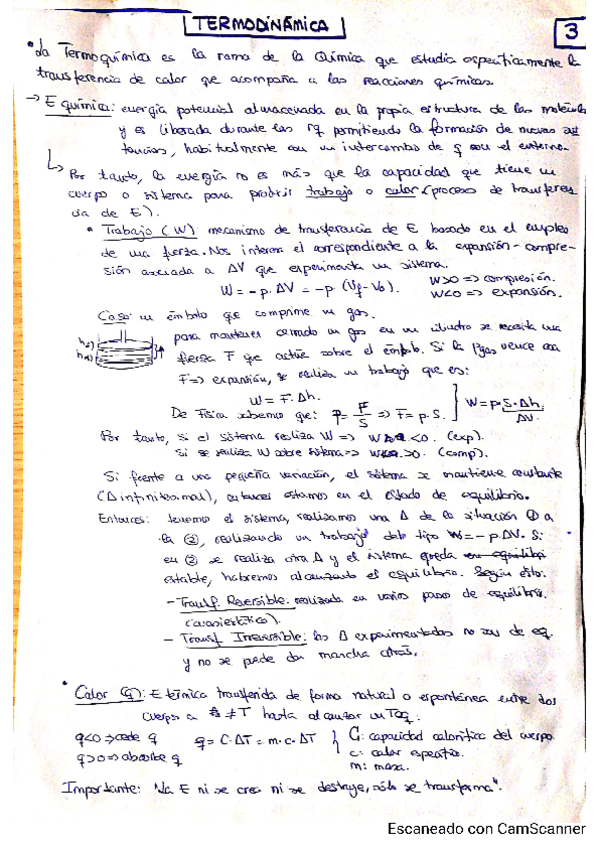 TERMODINÁMICA
3
• La Termoquímica es la rama de la Química que estudia específicamente la
transferencia de calor que acompaña a las reacciones químicas.
→ E química: energía potencial almacenada en la propia estructura de las moléculas
y es liberada durante las rq permitiendo la formación de nuevas sus
tancias, habitualmente con un intercambio de q con el entorno.
↳ Por tanto, la energía no es más que la capacidad que tiene un
cuerpo o sistema para producir trabajo o calor (proceso de transferen
cia de E).
• Trabajo (W): mecanismo de transferencia de E basado en el empleo
de una fuerza. Nos interesa el correspondiente a la expansión-compre-
sión asociada a ΔV que experimenta un sistema.
W = -p. ΔV = -p. (Vf-Vo). W>0 => compresión.
W<0 => expansión.
Caso: un émbolo que comprime un gas.
para mantener cerrado un gas en un cilindro se necesita una
fuerza F que actúe sobre el émbolo. Si la pgas vence esa
F => expansión, se realiza un trabajo que es:
W = F. Δh.
De Física sabemos que: p = F/S => F = p.S. W = p.S.Δh.
ΔV.
Por tanto, si el sistema realiza W => W<0. (exp).
Si se realiza W sobre sistema => W>0. (comp).
Si frente a una pequeña variación, el sistema se mantiene constante
(Δ infinitesimal), entonces estamos en el estado de equilibrio.
Entonces: tenemos el sistema, realizamos una Δ de la situación ① a
la ②, realizando un trabajo del tipo W = -p.ΔV. Si
en ② se realiza otra Δ y el sistema queda
estable, habremos alcanzado el equilibrio. Según esto:
- Transf. Reversible: realizada en varios pasos de equilibrio.
(cuasiestático).
- Transf. Irreversible: las Δ experimentadas no son de eq.
y no se puede dar marcha atrás.
• Calor (q): E térmica transferida de forma natural o espontánea entre dos
cuerpos a ≠T hasta alcanzar un Teq.
q<0 => cede q q = C.ΔT = m.c.ΔT C: capacidad calorífica del cuerpo
q>0 => absorbe q c: calor específico.
m: masa.
Importante: "La E ni se crea ni se destruye, sólo se transforma".
Escaneado con CamScanner